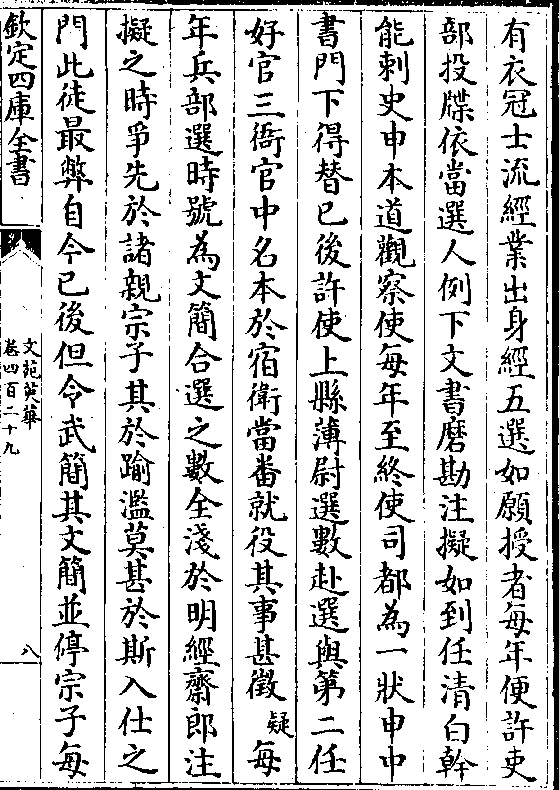 有衣冠士流經業出身經五選如願授者每年便許吏
部投牒依當選人例下文書磨勘注擬如到任清白幹
能刺史申本道觀察使每年至終使司都為一狀申中
書門下得替已後許使上縣薄尉選數赴選與第二任
好官三衙官中名本於宿衛當番就役其事甚徵疑每
年兵部選時號為文簡合選之數全淺於明經齋郎注
擬之時爭先於諸親宗子其於踰濫莫甚於斯入仕之
門此徒最弊自今已後但令武簡其文簡並停宗子每
欽定四庫全書
文苑英華
卷四百二十九
八